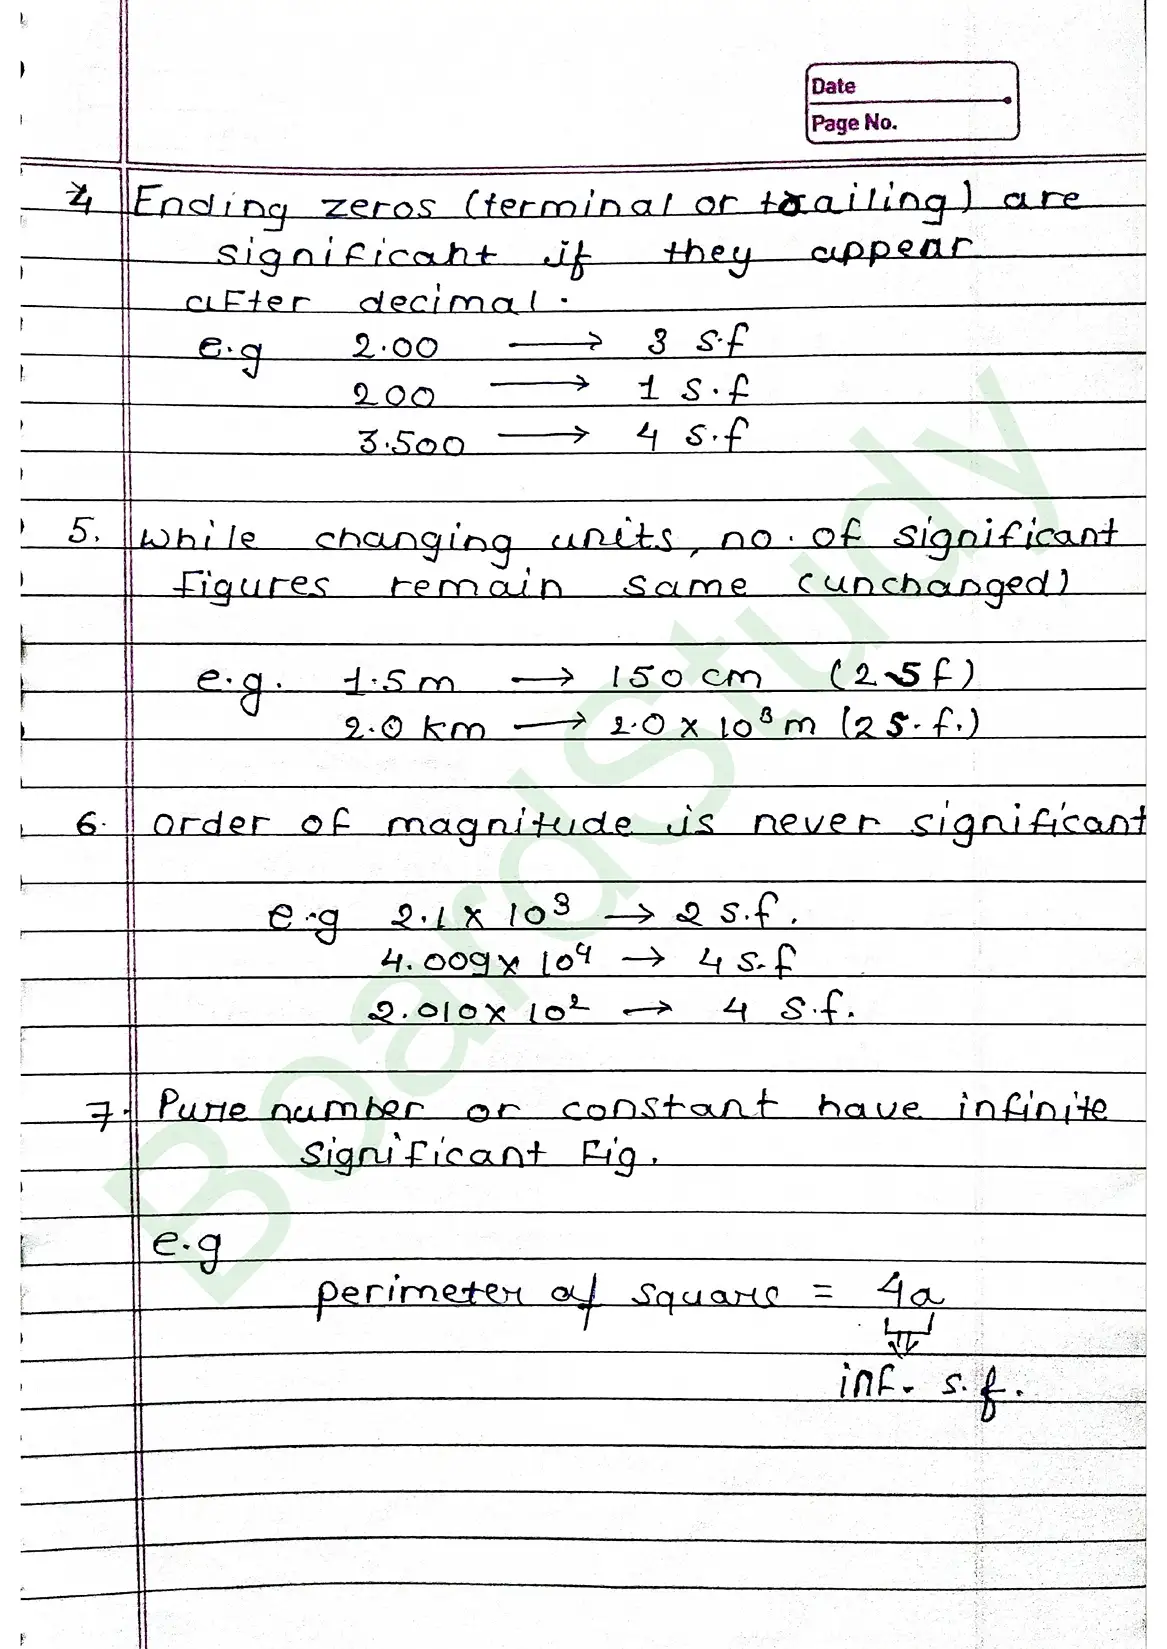 Date
Page No.
4 Ending zeros (terminal or trailing) are
significant if they appear
after decimal.
e.g 2.00 → 3 s.f
200 → 1 s.f
3.500 → 4 s.f
5. while changing units, no. of significant
figures remain same (unchanged)
e.g. 1.5m → 150 cm (2 s f)
2.0 km → 2.0 × 10³ m (2 s.f.)
6. order of magnitude is never significant
e.g 2.1 × 10³ → 2 s.f.
4.009 × 10⁴ → 4 s.f
2.010 × 10² → 4 s.f.
7. Pure number or constant have infinite
significant Fig.
e.g
perimeter of square = 4a
inf. s.f.
BoardStudy